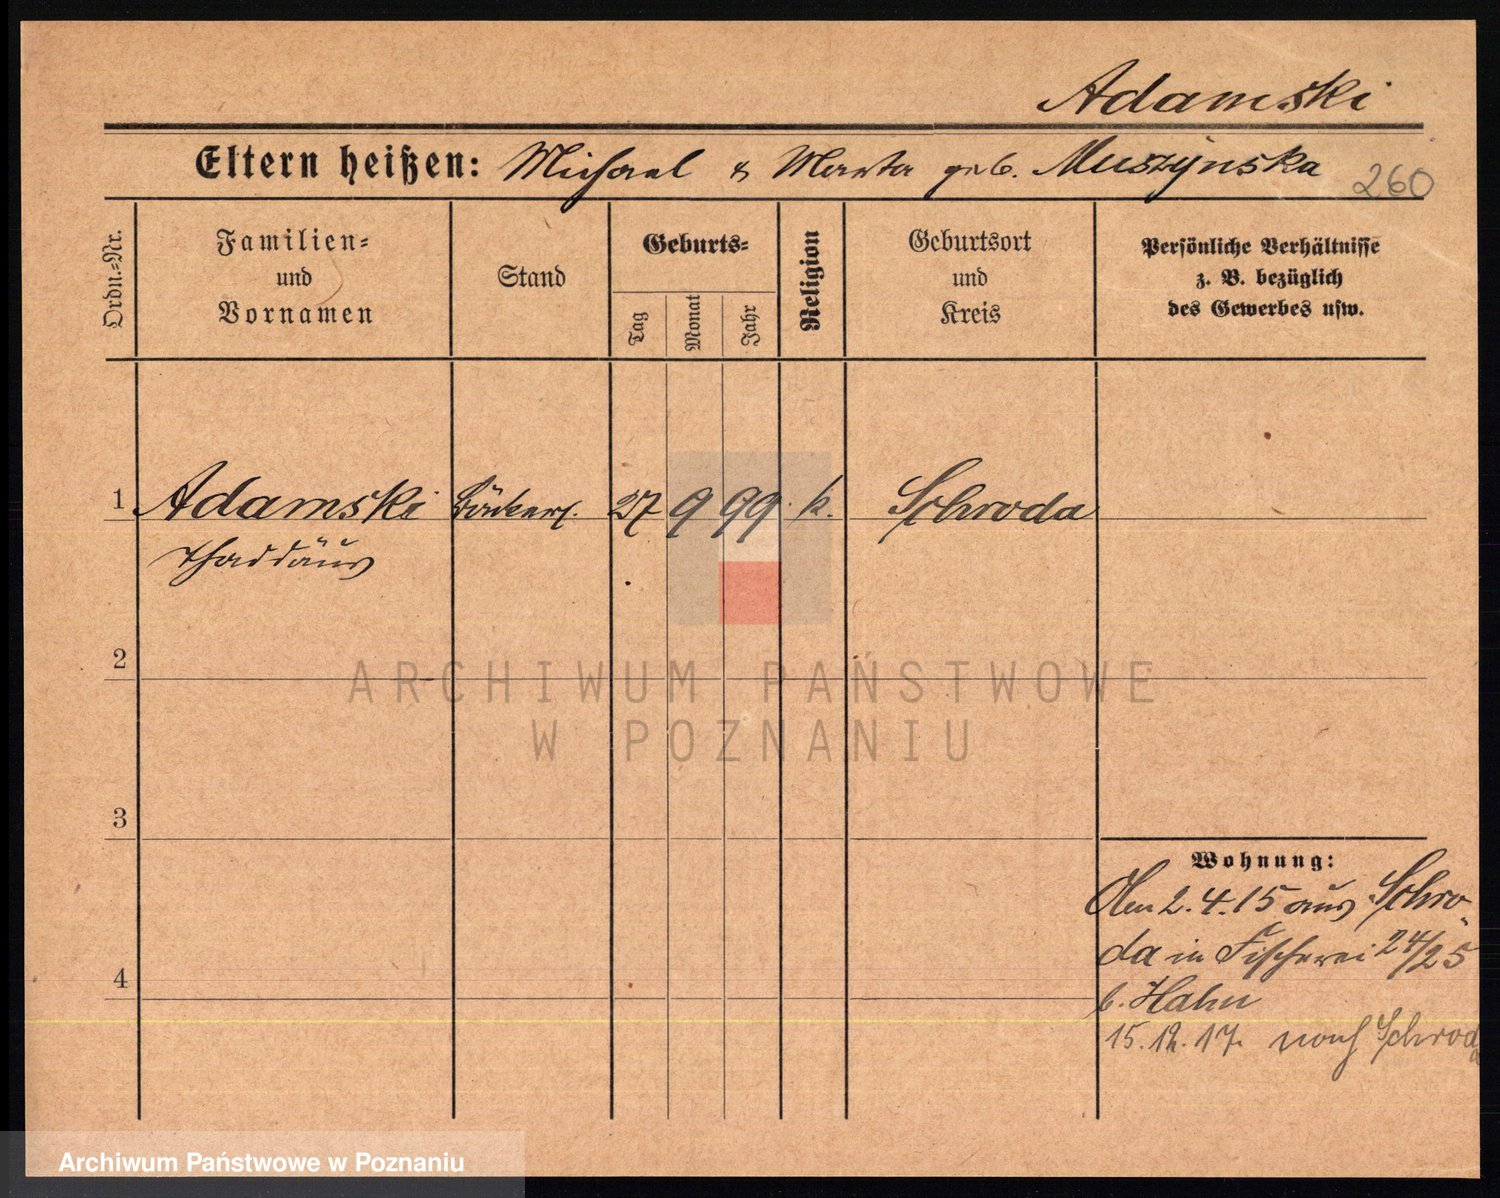 Adamski
Eltern heißen: Michael & Marta geb. Muszyńska 260
Ordn.-Nr.
Familien-
und
Vornamen
Stand
Geburts-
Tag
Monat
Jahr
Religion
Geburtsort
und
Kreis
Persönliche Verhältnisse
z. B. bezüglich
des Gewerbes usw.
1 Adamski Bäckerl. 27 9 99 k. Schroda
Thaddäus
2
ARCHIWUM PAŃSTWOWE
W POZNANIU
3
Wohnung:
2.4.15 aus Schro-
da in Fischerei 24/25
4
b. Hahn
15.12.17. nach Schroda
Archiwum Państwowe w Poznaniu